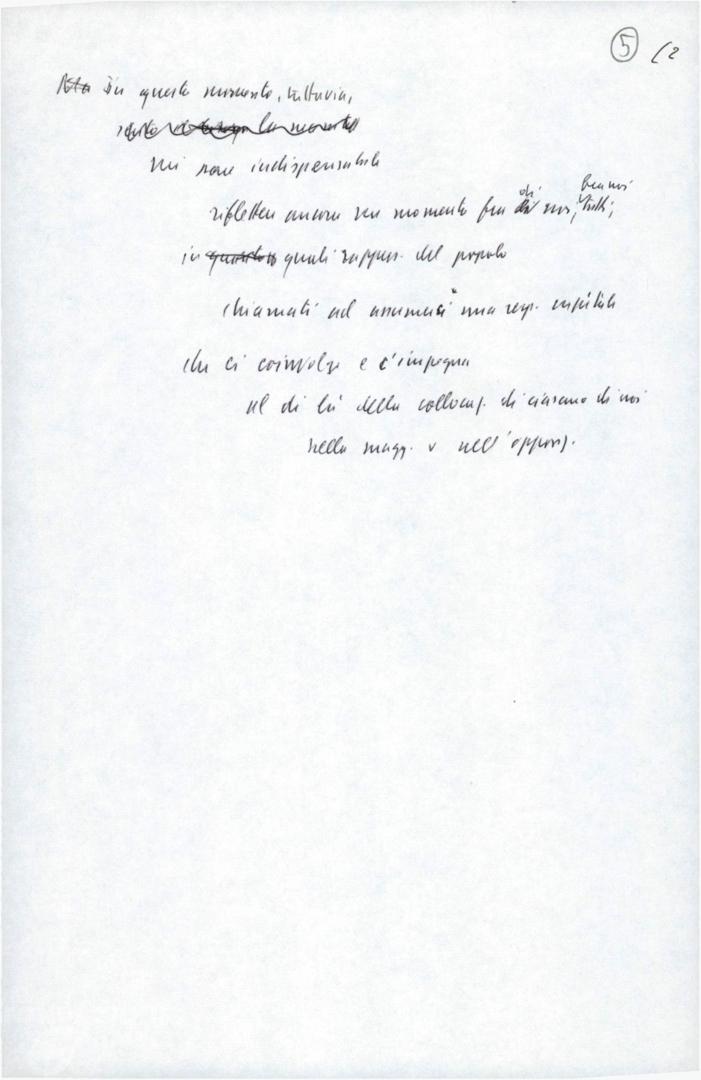 5 /2
Ma In questo momento, tuttavia,
la momento
mi pare indispensabile
riflettere ancora un momento fra di noi, tutti;
in quali rappres. del popolo
chiamati ad assumerci una resp.
che ci coinvolge e c'impegna
al di là della collocaz. di ciascuno di noi
nella magg. o nell'oppos).